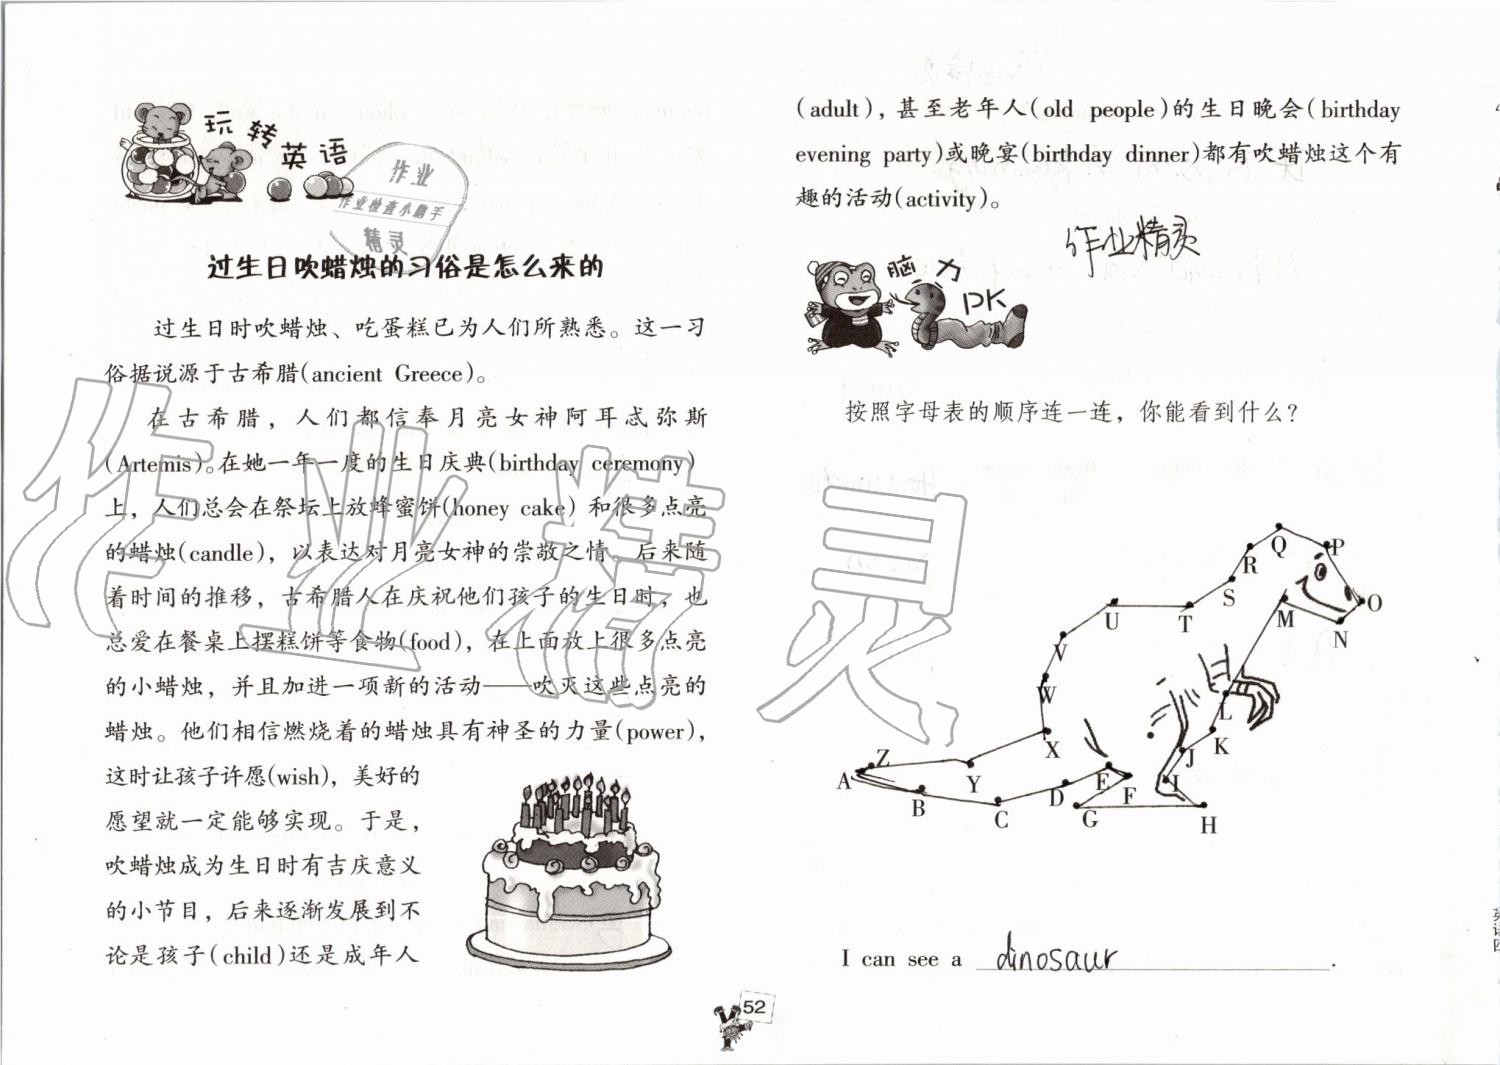 玩转英语
作业
作业检查小助手
精灵
过生日吹蜡烛的习俗是怎么来的
过生日时吹蜡烛、吃蛋糕已为人们所熟悉。这一习
俗据说源于古希腊(ancient Greece)。
在古希腊，人们都信奉月亮女神阿耳忒弥斯
(Artemis)。在她一年一度的生日庆典(birthday ceremony)
上，人们总会在祭坛上放蜂蜜饼(honey cake) 和很多点亮
的蜡烛(candle)，以表达对月亮女神的崇敬之情。后来随
着时间的推移，古希腊人在庆祝他们孩子的生日时，也
总爱在餐桌上摆糕饼等食物(food)，在上面放上很多点亮
的小蜡烛，并且加进一项新的活动——吹灭这些点亮的
蜡烛。他们相信燃烧着的蜡烛具有神圣的力量(power)，
这时让孩子许愿(wish)，美好的
愿望就一定能够实现。于是，
吹蜡烛成为生日时有吉庆意义
的小节目，后来逐渐发展到不
论是孩子(child)还是成年人
作业精灵
52
(adult)，甚至老年人(old people)的生日晚会(birthday
evening party)或晚宴(birthday dinner)都有吹蜡烛这个有
趣的活动(activity)。
作业精灵
脑力PK
按照字母表的顺序连一连，你能看到什么？
Q
P
R
S
O
M
N
U
T
V
W
L
X
K
J
Z
A
Y
E
I
B
D
F
C
G
H
I can see a dinosaur.
英语四